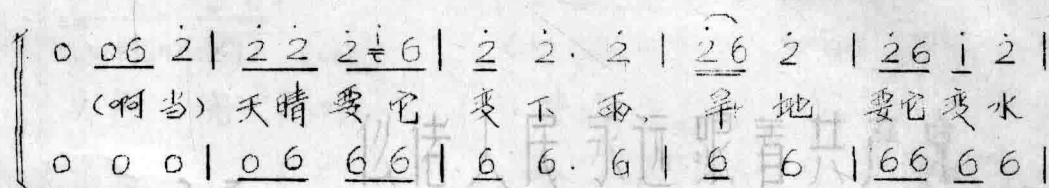 0 06 2̇ | 2̇ 2̇ 2̇ i̇ 6 | 2̇ 2̇. 2̇ | 2̇6 2̇ | 2̇6 i̇ 2̇ |
(啊当) 天晴要它 变下雨, 旱地 要它变水
0 0 0 | 0 6 6 6 | 6 6. 6 | 6 6 | 66 6 6 |